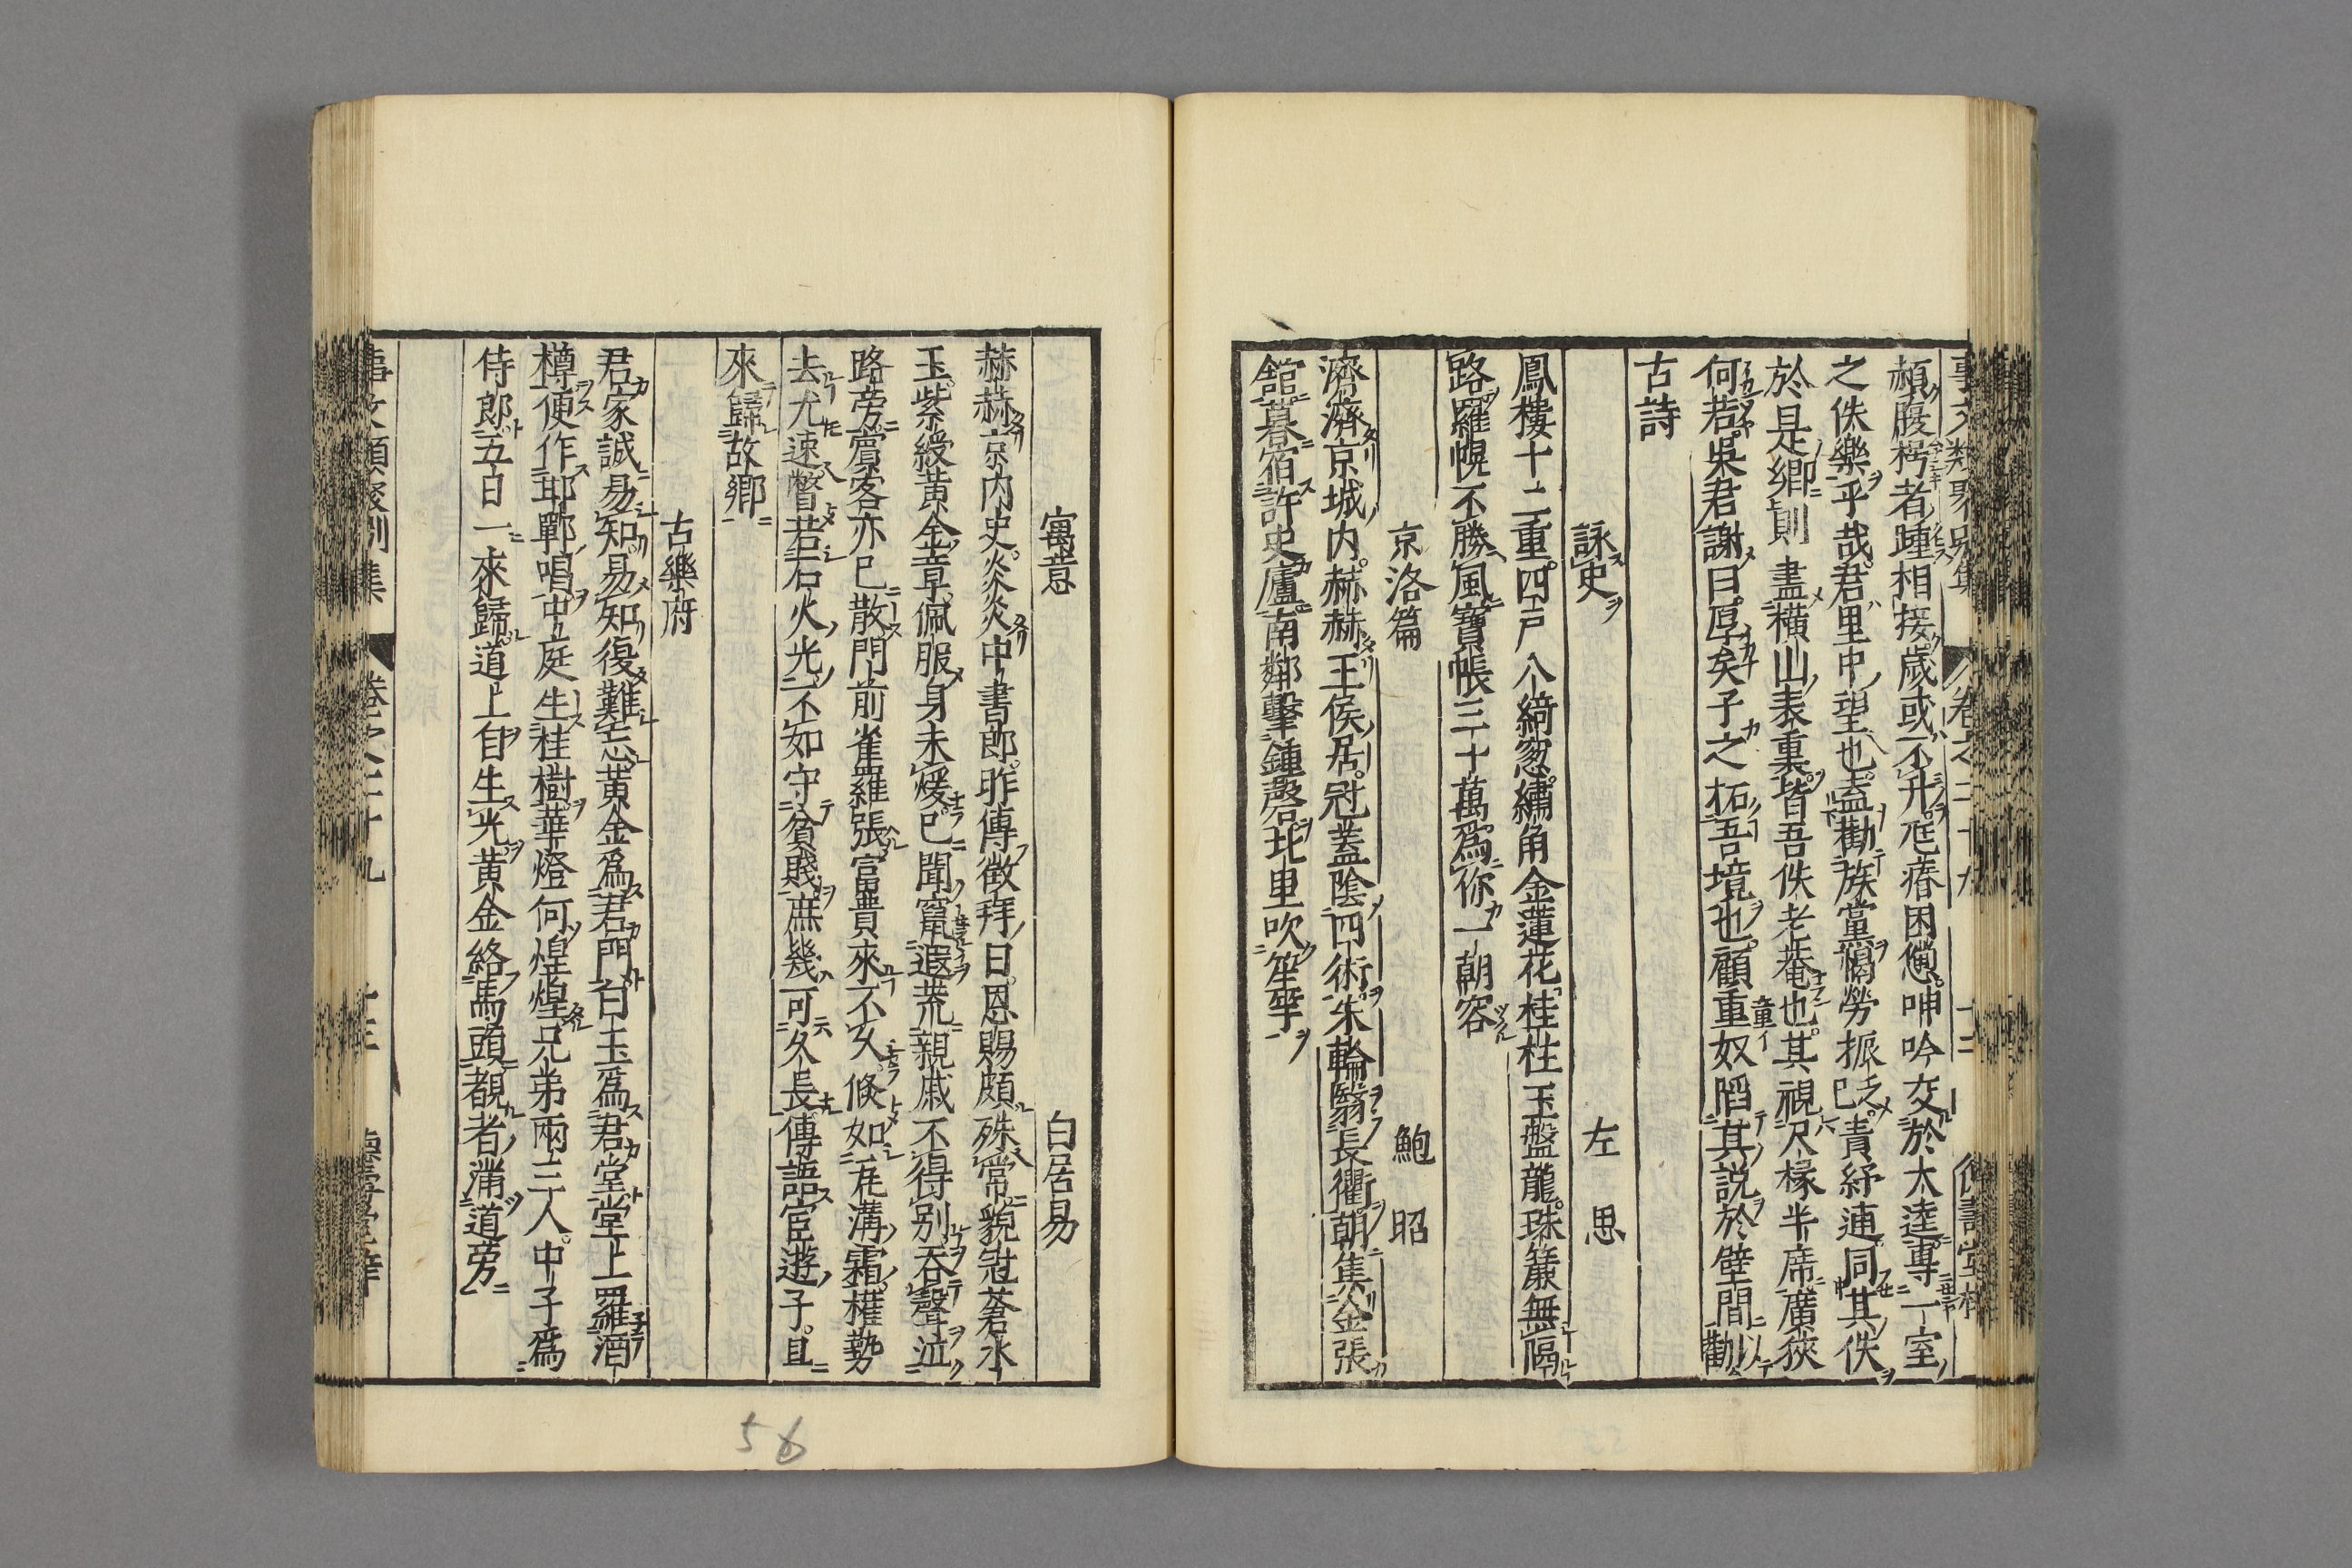 頳腹枵者踵相接歲或不升尫瘠困憊呻吟交於大逵專一室
之佚樂乎哉君里中望也盍勸族黨惕勞振乏已責紓逋同其佚
於是鄉則盡橫山表裏皆吾佚老菴也其視尺椽半席廣狹
何若吳君謝曰厚矣子之柘吾境也顧重奴蹈其説於壁間以勸
古詩
詠史 左思
鳳樓十二重四戸八綺窓繡角金蓮花桂柱玉盤龍珠簾無隔
路羅幌不勝風寶帳三十萬爲你一朝容
京洛篇 鮑昭
濟濟京城內赫赫王侯居冠蓋陰四術朱輪翳長衢朝集金張
舘暮宿許史廬南鄰擊鍾磬北里吹笙竽
寓意 白居易
赫赫京內史炎炎中書郎昨傳徵拜日恩賜頗殊常貌冠蒼水
玉紫綬黃金章佩服身未煖已聞竄遐荒親戚不得別吞聲泣
路旁賓客亦已散門前雀羅張富貴來不久倏如瓦溝霜權勢
去尤速瞥若石火光不如守貧賤庶幾可久長傳語宦遊子且
來歸故鄉
古樂府
君家誠易知易知復難忘黃金爲君門白玉爲君堂堂上羅酒
樽便作邯鄲唱中庭生桂樹華燈何煌煌兄弟兩三人中子爲
侍郎五日一來歸道上自生光黃金絡馬頭覩者滿道旁
事文類聚別集 卷之二十九
56